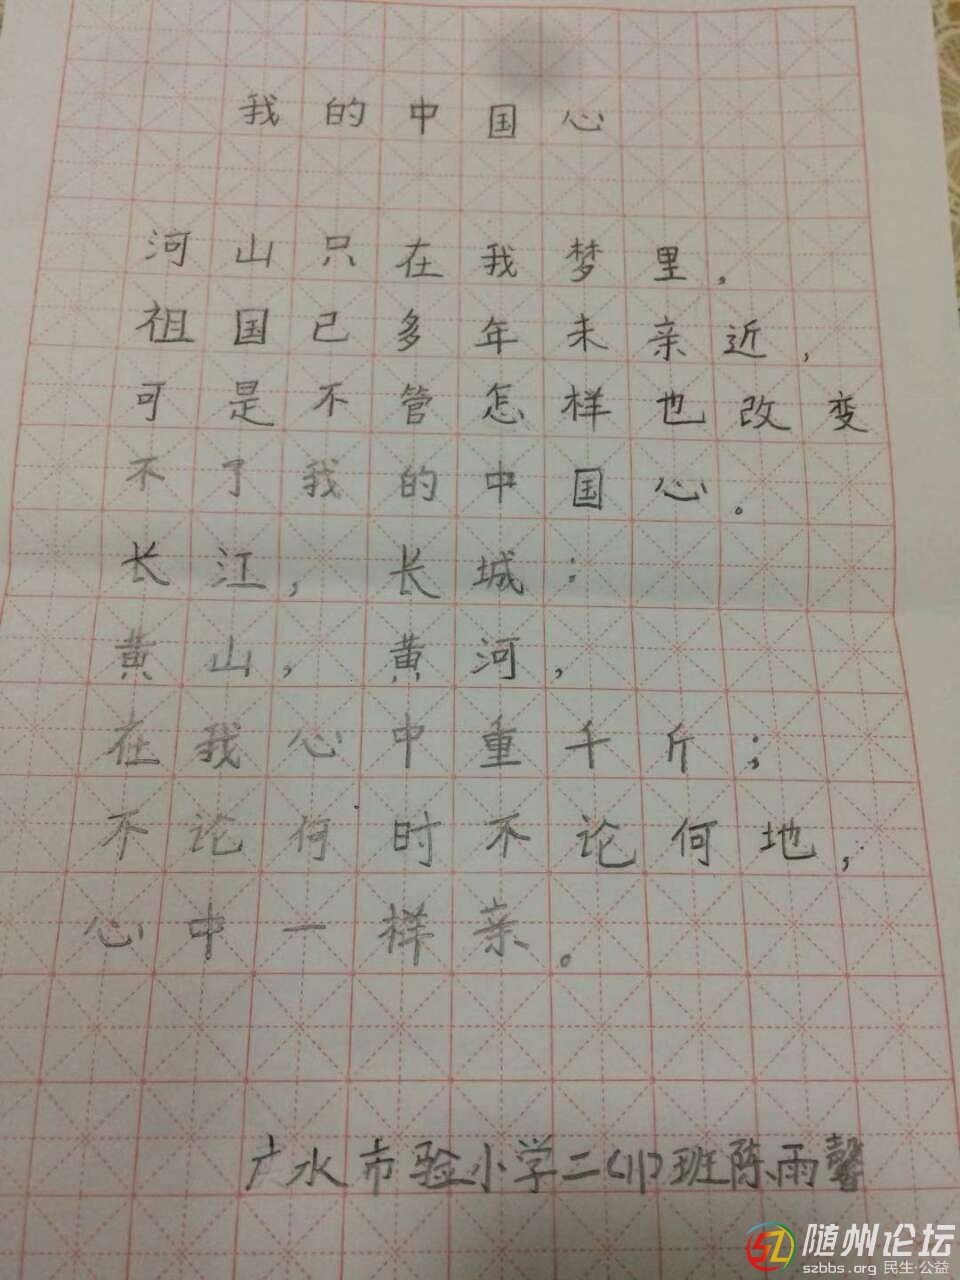 我的中国心
河山只在我梦里，
祖国已多年未亲近，
可是不管怎样也改变
不了我的中国心。
长江，长城：
黄山，黄河，
在我心中重千斤；
不论何时不论何地，
心中一样亲。
广水市验小学二(11)班陈雨馨
随州论坛
szbbs.org 民生·公益